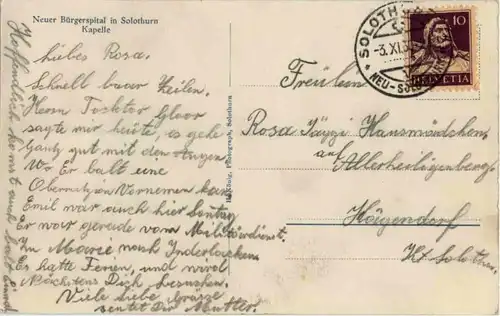 Neuer Bürgerspital in Solothurn
Kapelle
Liebes Rosa.
Schnell baar Zeilen.
Herrn Tockter Gloor
sagte mir heute, es gehe
Gantz gut mit den Augen
Wo Er balt eine
Obernatzion Vornemen kan
Emil war auch hier Sontag
Er war gerade vom Militärdienst.
Zu Marie nach Inderlacken
Er hatte Ferien, und wird
Nächstens Dich besuchen.
Viele liebe Grüsse
sentet Dir Mutter.
Hoffendlich komst auch balt einmal
Photograph, Solothurn
SOLOTHURN
-3.XI.
NEU-SOLOTHURN
10
HELVETIA
Fräulein
Rosa Jäggi Hausmädchen
auf
Allerheiligenberg
Hägendorf
Kt. Solothurn